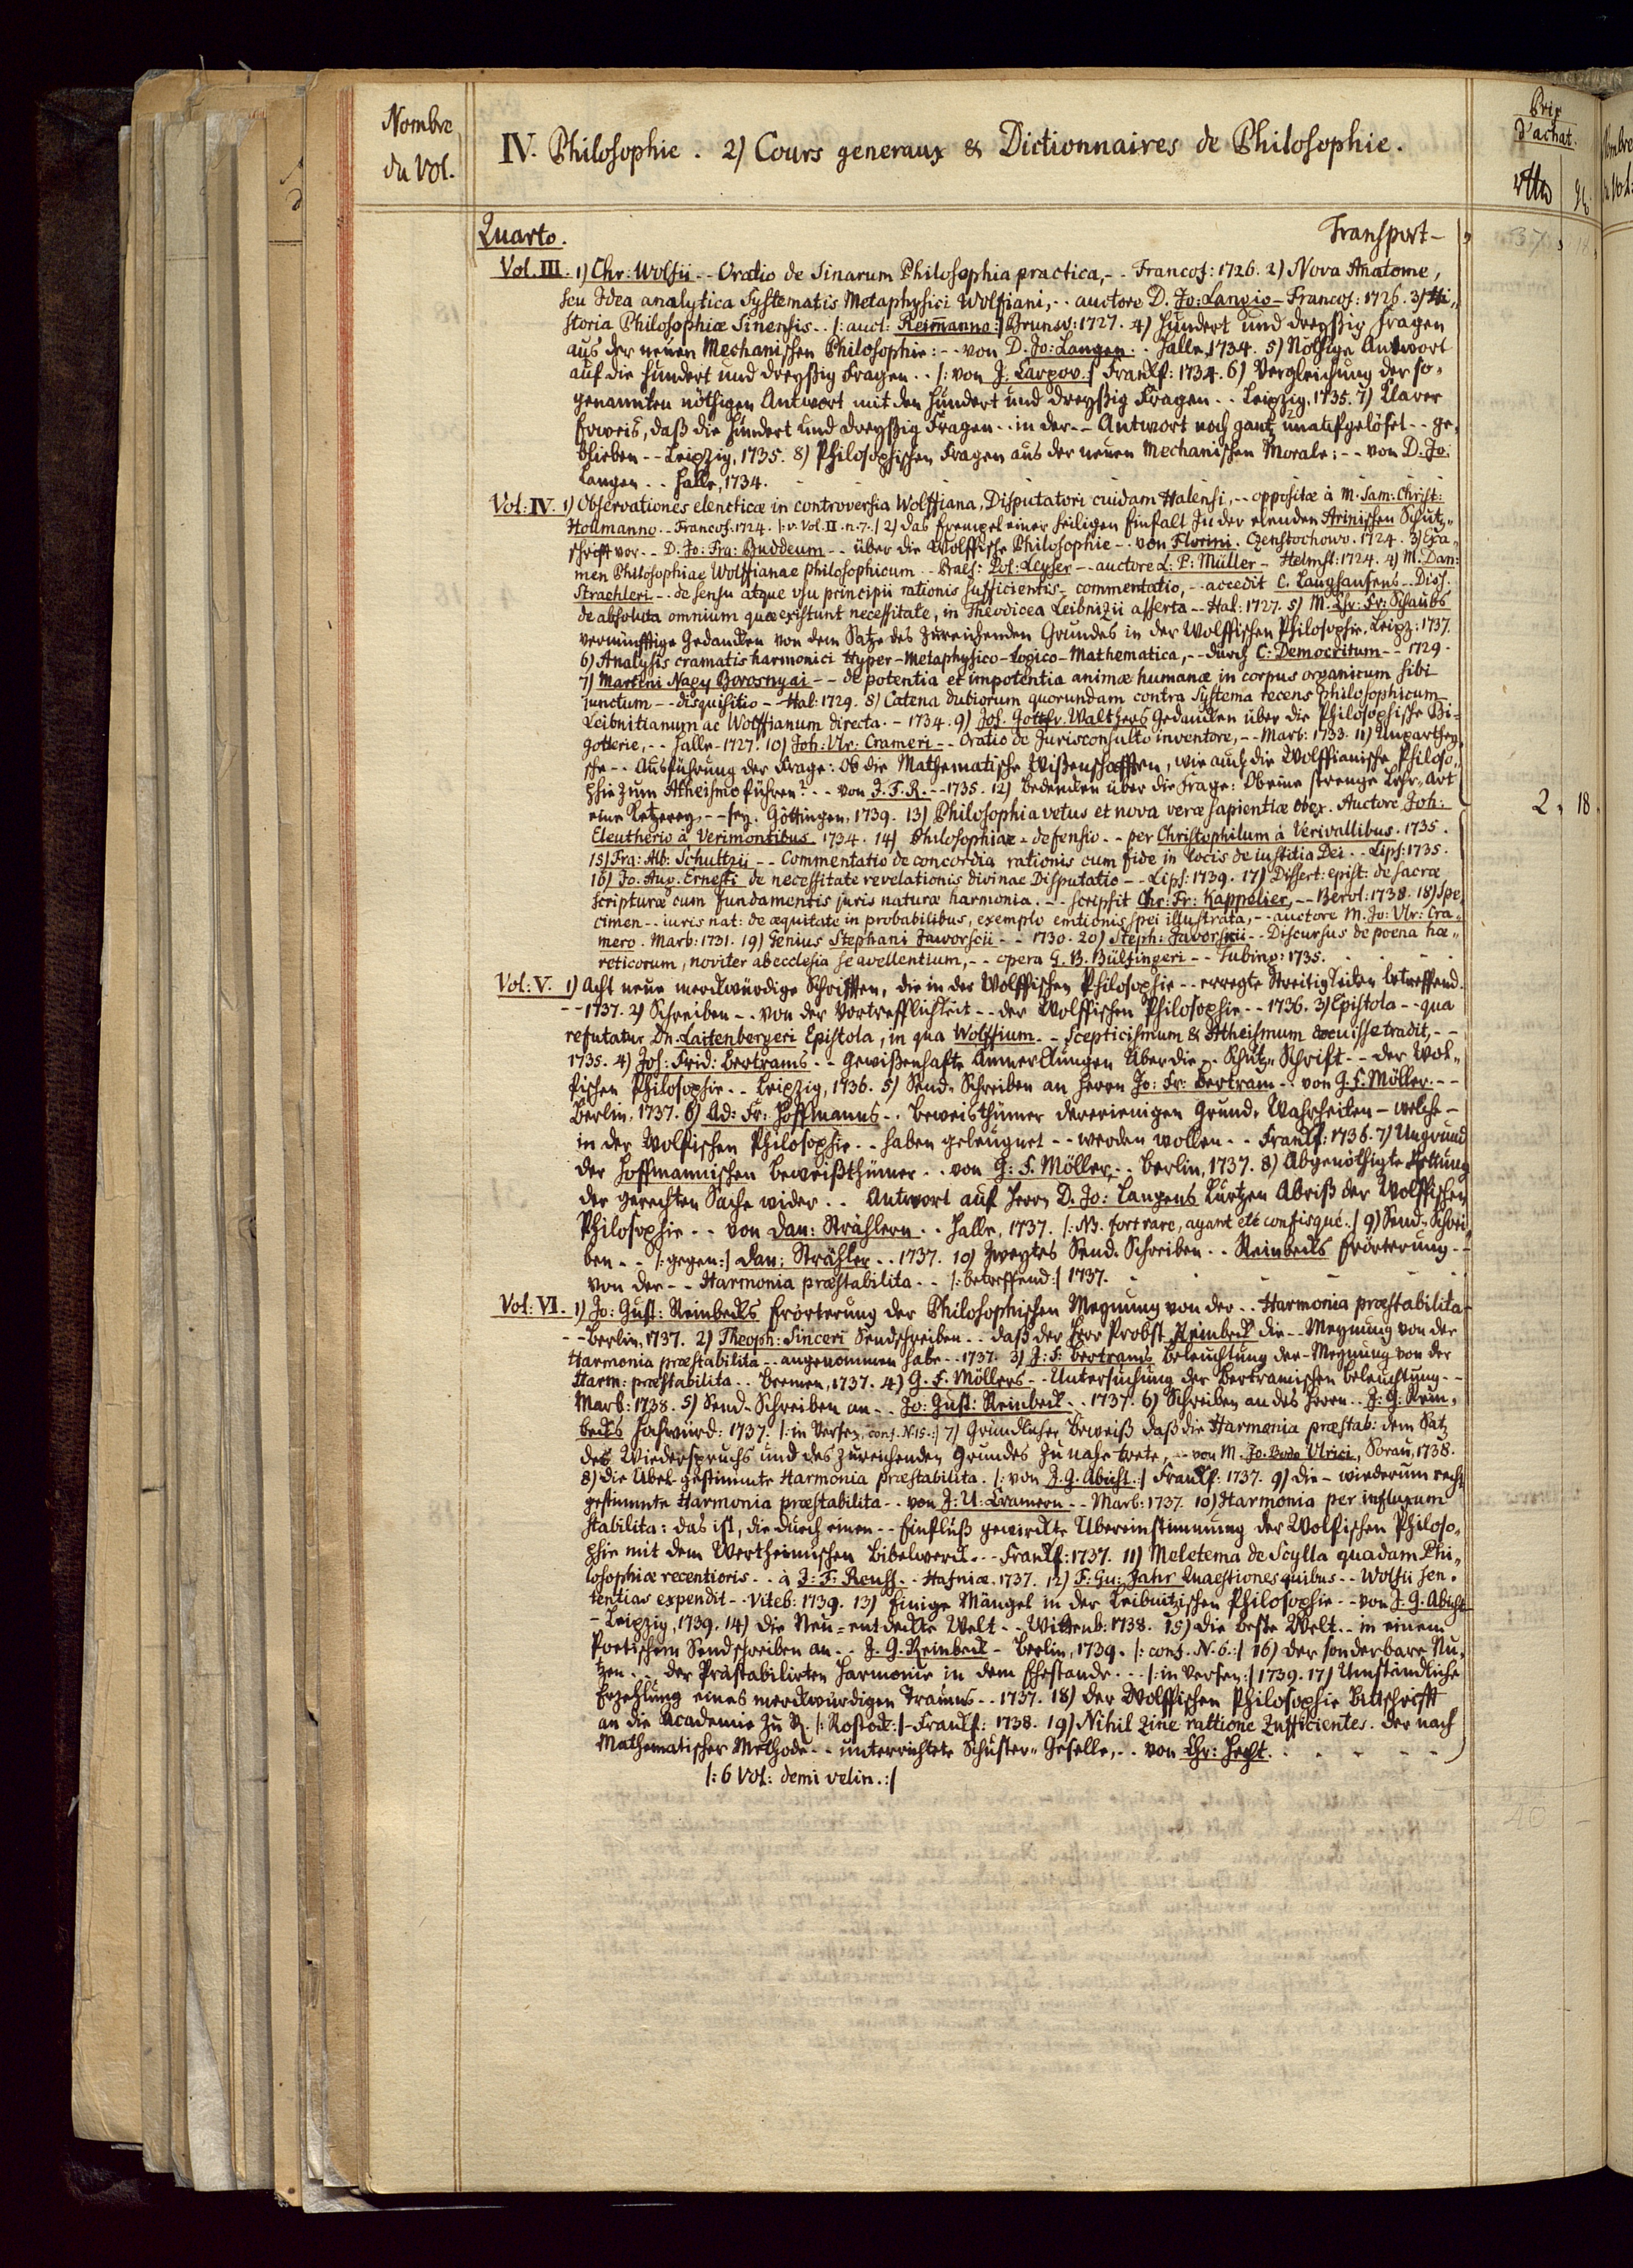 Nombre
du Vol.
IV. Philosophie. 2) Cours generaux & Dictionnaires de Philosophie.
Prix
d'achat.
Quarto. Transport –
Vol. III. 1) Chr: Wolfii -- Oratio de Sinarum Philosophia practica, -- Francof: 1726. 2) Nova Anatome,
seu Idea analytica Systematis Metaphysici Wolfiani, -- auctore D. Jo: Langio – Francof: 1726. 3) Hi„
storia Philosophiæ Sinensis -- /: auct: Reimanno :/ Brunsv: 1727. 4) Hundert und dreyßig Fragen
aus der neuen Mechanischen Philosophie: -- von D. Jo: Langen -- Halle, 1734. 5) Nöthige Antwort
auf die Hundert und dreyßig Fragen -- /: von J. Carpov. :/ Franckf: 1734. 6) Vergleichung der so„
genannten nöthigen Antwort mit den Hundert und dreyßig Fragen -- Leipzig, 1735. 7) Klarer
Erweis, daß die Hundert und dreyßig Fragen -- in der -- Antwort noch gantz unaufgelöset -- ge„
blieben -- Leipzig, 1735. 8) Philosophischen Fragen aus der neuen Mechanischen Morale: -- von D. Jo:
Langen -- Halle, 1734.
Vol: IV. 1) Observationes elencticæ in controversia Wolffiana, Disputatori cuidam Halensi, -- oppositæ à M. Sam: Christ:
Hollmanno -- Francof. 1724. /: v. Vol. II. n. 7. :/ 2) Das Exempel einer heiligen Einfalt in der elenden Arinischen Schutz„
schrifft vor -- D. Jo: Fra: Buddeum -- über die Wolffische Philosophie -- von Florini. Czenstochow. 1724. 3) Exa„
men Philosophiae Wolffianae philosophicum -- Praes: Pol: Leyser -- auctore L: P: Müller – Helmst: 1724. 4) M. Dan:
Straehleri -- de sensu atque usu principii rationis sufficientis – commentatio, -- accedit C. Langhansens -- Diss.
de absoluta omnium quæ existunt necessitate, in Theodicea Leibnizii asserta -- Hal: 1727. 5) M. Chr: Fr: Schaubs
vernünfftige Gedancken von dem Satze des Zureichenden Grundes in der Wolffischen Philosophie. Leipz: 1737.
6) Analysis cramatis harmonici Hyper-Metaphysico-Logico-Mathematica, -- durch C: Democritum -- 1729.
7) Marteni Nagy Borosnyai -- de potentia et impotentia animæ humanæ in corpus organicum sibi
junctum -- disquisitio -- Hal: 1729. 8) Catena dubiorum quorundam contra Systema recens philosophicum
Leibnitianum ac Wolffianum directa. – 1734. 9) Joh. Gottfr. Walthers Gedancken über die Philosophische Bi„
gotterie, -- Halle – 1727. 10) Joh: Vlr: Crameri -- Oratio de Jurisconsulto inventore, -- Marb: 1733. 11) Unparthey„
sche -- Ausführung der Frage: Ob die Mathematische Wißenschafften, wie auch die Wolffianische Philoso„
phie zum Atheismo führen? -- von J. F. R. -- 1735. 12) Bedencken über die Frage: Ob eine strenge Lehr-Art
eine Ketzerey, -- sey. Göttingen, 1739. 13) Philosophia vetus et nova veræ sapientiæ obex. Auctore Joh: 2, 18.
Eleutherio à Verimontibus. 1734. 14) Philosophiae – defensio -- per Christophilum à Verivallibus. 1735.
15) Fra: Alb: Schultzii -- Commentatio de concordia rationis cum fide in locis de iustitia Dei -- Lips: 1735.
16) Jo. Aug. Ernesti de necessitate revelationis divinae Disputatio -- Lips: 1739. 17) Dissert: epist: de sacræ
scripturæ cum fundamentis juris naturæ harmonia. -- scripsit Chr: Fr: Kappelier, -- Berol: 1738. 18) Spe„
cimen -- iuris nat: de æquitate in probabilibus, exemplo emtionis spei illustrata, -- auctore M. Jo: Vlr: Cra„
mero. Marb: 1731. 19) Genius Stephani Jaworscii -- 1730. 20) Steph: Javorskii -- Discursus de poena hæ„
reticorum, noviter ab ecclesia se avellentium, -- opera G. B. Bülfingeri -- Tubing: 1735.
Vol: V. 1) Acht neue merckwürdige Schrifften, die in der Wolffischen Philosophie -- erregte Streitigkeiten betreffend.
-- 1737. 2) Schreiben -- von der Vortrefflichkeit -- der Wolffischen Philosophie -- 1736. 3) Epistola -- qua
refutatur Dn. Laitenbergeri Epistola, in qua Wolffium -- Scepticismum & Atheismum docuisse tradit, --
1735. 4) Joh: Frid: Bertrams -- Gewißenhafte Anmerckungen über die -- Schutz-Schrift -- der Wol„
fischen Philosophie -- Leipzig, 1736. 5) Send-Schreiben an Herrn Jo: Fr: Bertram -- von G. F. Möller. --
Berlin, 1737. 6) Ad: Fr: Hoffmanns -- Beweisthümer dererienigen Grund-Wahrheiten – welche –
in der Wolfischen Philosophie -- haben geleugnet -- werden wollen -- Franckf: 1736. 7) Ungrund
der Hoffmannischen Beweißthümer -- von G: F. Möller, -- Berlin, 1737. 8) Abgenöthigte Rettung
der gerechten Sache wider -- Antwort auf Herrn D. Jo: Langens kurtzen Abriß der Wolffischen
Philosophie -- von Dan: Strählern -- Halle, 1737. /: NB. fort rare, ayant eté confisqué. :/ 9) Send-Schrei„
ben -- /: gegen :/ Dan: Strähler -- 1737. 10) Zweytes Send-Schreiben -- Reinbecks Erörterung --
von der -- Harmonia præstabilita -- /: betreffend :/ 1737.
Vol: VI. 1) Jo: Gust: Reinbecks Erörterung der Philosophischen Meynung von der -- Harmonia præstabilita
-- Berlin, 1737. 2) Theoph: Sinceri Sendschreiben -- daß der Herr Probst Reinbeck die -- Meynung von der
Harmonia præstabilita -- angenommen habe -- 1737. 3) J: F: Bertrams Beleuchtung der – Meynung von der
Harm: præstabilita -- Bremen, 1737. 4) G. F. Möllers -- Untersuchung der Bertramischen Beleuchtung --
Marb: 1738. 5) Send-Schreiben an -- Jo: Gust: Reinbeck -- 1737. 6) Schreiben an des Herrn -- J: G: Rein„
becks Hochwürd: 1737. /: in Versen, conf. N. 15. :/ 7) Gründlicher Beweiß daß die Harmonia præstab: dem Satz
des Wiederspruchs und des Zureichenden Grundes zu nahe trete, -- von M. Jo. Bodo Ulrici, Sorau, 1738.
8) Die Übel-gestimmte Harmonia præstabilita. /: von J. G. Abicht. :/ Franckf: 1737. 9) Die – wiederum recht
gestimmte Harmonia præstabilita -- von J: U: Cramern -- Marb: 1737. 10) Harmonia per influxum
stabilita: das ist, die durch einen -- Einfluß gewirckte Übereinstimmung der Wolfischen Philoso„
phie mit dem Wertheimischen Bibelwerck -- Franckf: 1737. 11) Meletema de Scylla quadam Phi„
losophiæ recentioris -- à J: F: Reuss -- Hafniæ. 1737. 12) F: Gu: Jahr Quaestiones quibus -- Wolfii sen„
tentias expendit -- Viteb: 1739. 13) Einige Mängel in der Leibnitzischen Philosophie -- von J. G. Abicht
– Leipzig, 1739. 14) Die Neu-entdeckte Welt -- Wittenb: 1738. 15) Die beste Welt -- in einem
Poetischen Sendschreiben an -- J. G. Reinbeck – Berlin, 1739. /: conf. N. 6. :/ 16) Der sonderbare Nu„
tzen -- der Prästabilirten Harmonie in dem Ehestande -- /: in Versen :/ 1739. 17) Umständliche
Erzehlung eines merckwürdigen Traums -- 1737. 18) Der Wolffischen Philosophie Bittschrifft
an die Academie zu R. /: Rostock :/ – Franckf: 1738. 19) Nihil Zine rattione Zufficientes. Der nach
Mathematischer Methode -- unterrichtete Schuster-Geselle, -- von Chr: Hecht.
/: 6 Vol: demi velin. :/
40